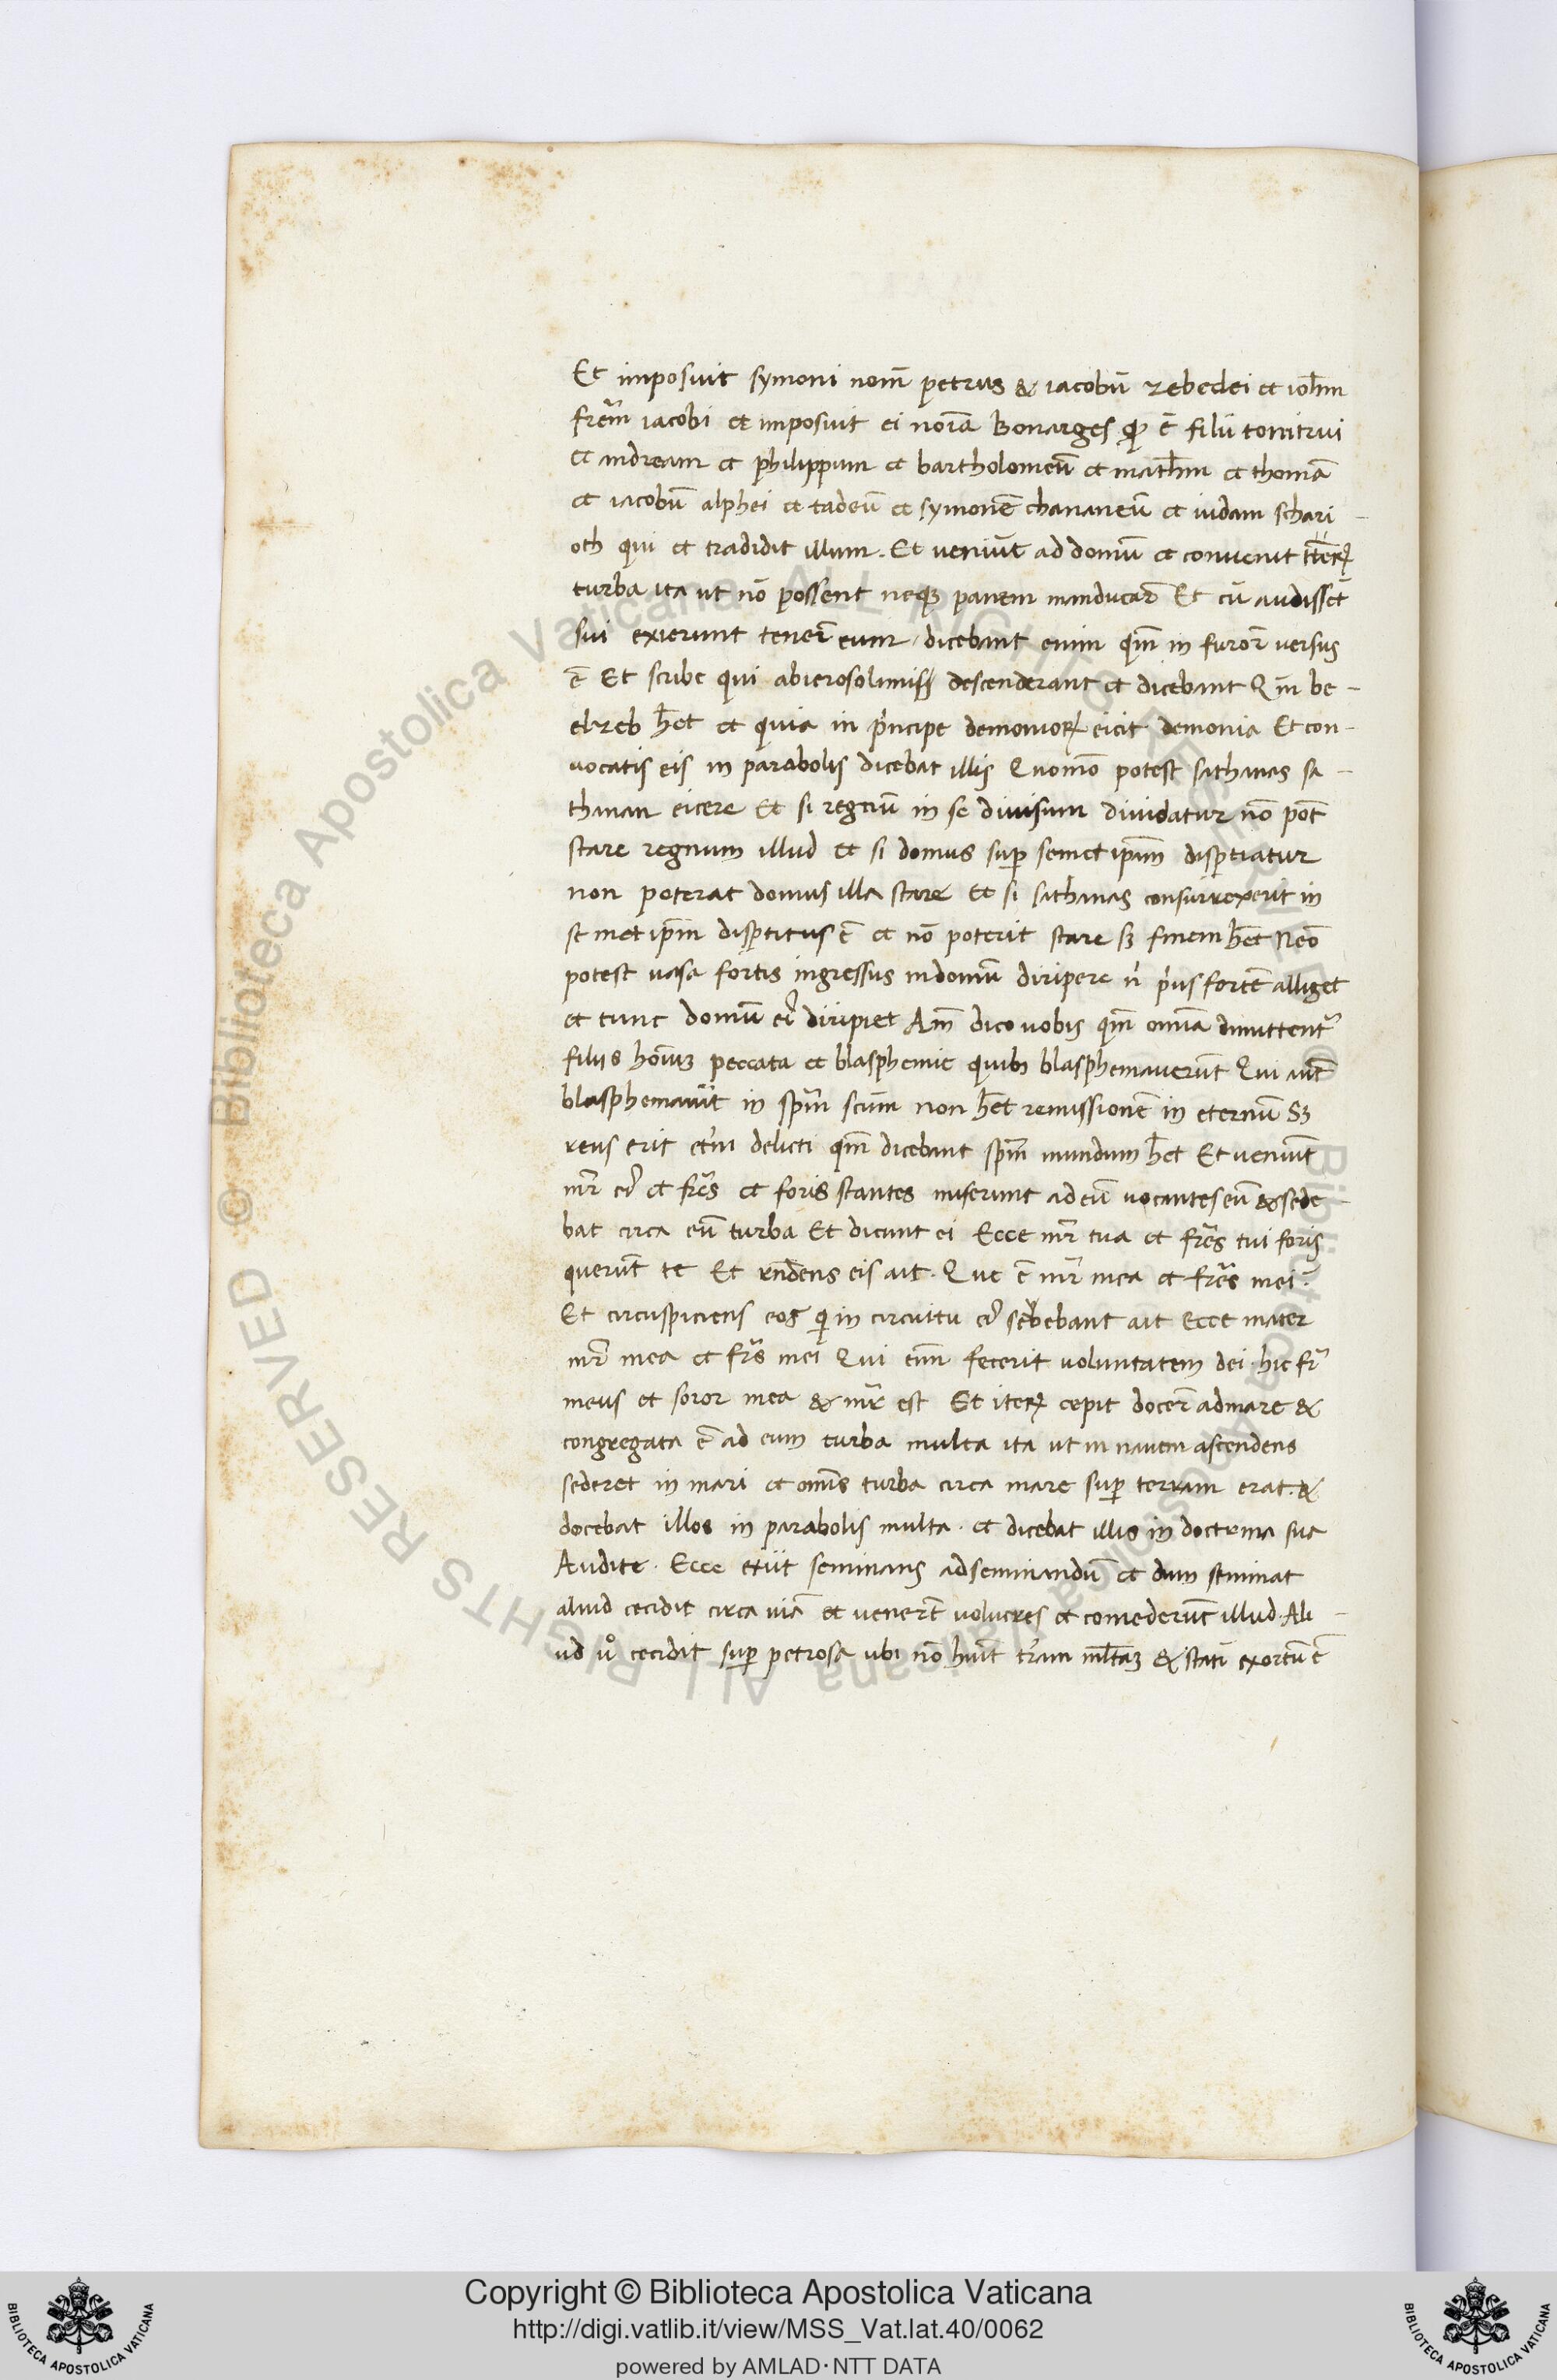 Et imposuit symoni nom̄ petrus & iacobū zebedei et ioh̄m
frēm iacobi et imposuit ei noīa Bonarges qđ ē filii tonitrui
et andream et philippum et bartholomeū et math̄m et thomā
et iacobū alphei et tadeū et symonē chananeū et iudam schari-
oth qui et tradidit illum. Et veniūt ad domū et convenit iterꝝ
turba ita ut nō possent neqꝫ panem manducar̄ Et cū audissēt
sui exierunt tener̄ eum. dicebant enim qm̄ in furor̄ versus
ē Et scribe qui abierosolimis descenderant et dicebant Qm̄ be-
elzeb h̄et et quia in pͥncipe demonioꝝ eicit demonia Et con-
vocatis eis in parabolis dicebat illis Quomō potest sathanas sa-
thanan eicere Et si regnū in se divisum dividatur nō pōt
stare regnum illud et si domus suꝑ semet ipsām disꝑtiatur
non poterat domus illa stare et si sathanas consurrexerit in
se met ipm̄ disꝑtitus ē et nō poterit stare sꝫ finem h̄et Nēo
potest vasa fortis ingressus indomū diripere nͥ pͥus fortē alliget
et tunc domū eiꝰ diripiet Am̄ dico vobis qm̄ omīa dimittentᷣ
filiis hoīuꝫ peccata et blasphemie quibꝫ blasphemaverūt Qui aūt
blasphemav̄it in spm̄ scūm non h̄et remissionē in eternū Sꝫ
reus erit et̄ni delicti qm̄ dicebant spm̄ mundum h̄et Et veniūt
mr̄ eiꝰ et fr̄es et foris stantes miserunt ad eū vocantes eū & sede-
bat circa eū turba Et dicunt ei Ecce mr̄ tua et fr̄es tui foris
querūt te Et rn̄dens eis ait. Que ē mr̄ mea et fr̄es mei.
Et circuspiciens eos qͥ in circuitu eiꝰ sedebant ait Ecce mater
mr̄ mea et fr̄s mei Qui enī fecerit voluntatem dei hic fr̄
meus et soror mea & mr̄ est Et iterꝝ cepit docer̄ admare &
congregata ē ad eum turba multa ita ut in navem ascendens
sederet in mari et omīs turba circa mare suꝑ terram erat. &
docebat illos in parabolis multa. et dicebat illis in doctrina sua
Audite. Ecce exiit seminans adseminandū et dum seminat
aliud cecidit circa viā et vener̄t volucres et comederūt illud. Ali-
ud vͦ cecidit suꝑ petrosa ubi nō h̄uit tr̄am ml̄taꝫ & stati exortū ē
© Biblioteca Apostolica Vaticana ALL RIGHTS RESERVED
© Biblioteca Apostolica Vaticana ALL RIGHTS RESERVED
Copyright © Biblioteca Apostolica Vaticana
http://digi.vatlib.it/view/MSS_Vat.lat.40/0062
powered by AMLAD·NTT DATA
BIBLIOTECA APOSTOLICA VATICANA
BIBLIOTECA APOSTOLICA VATICANA